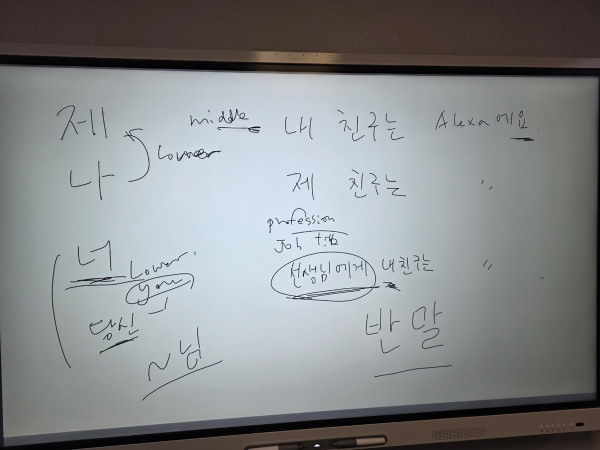 제
나
lower
middle 내 친구는 Alexa 예요.
제 친구는 〃
profession
Job title
선생님에게 내 친구는 〃
반말
너 Lower.
you
당신
~님